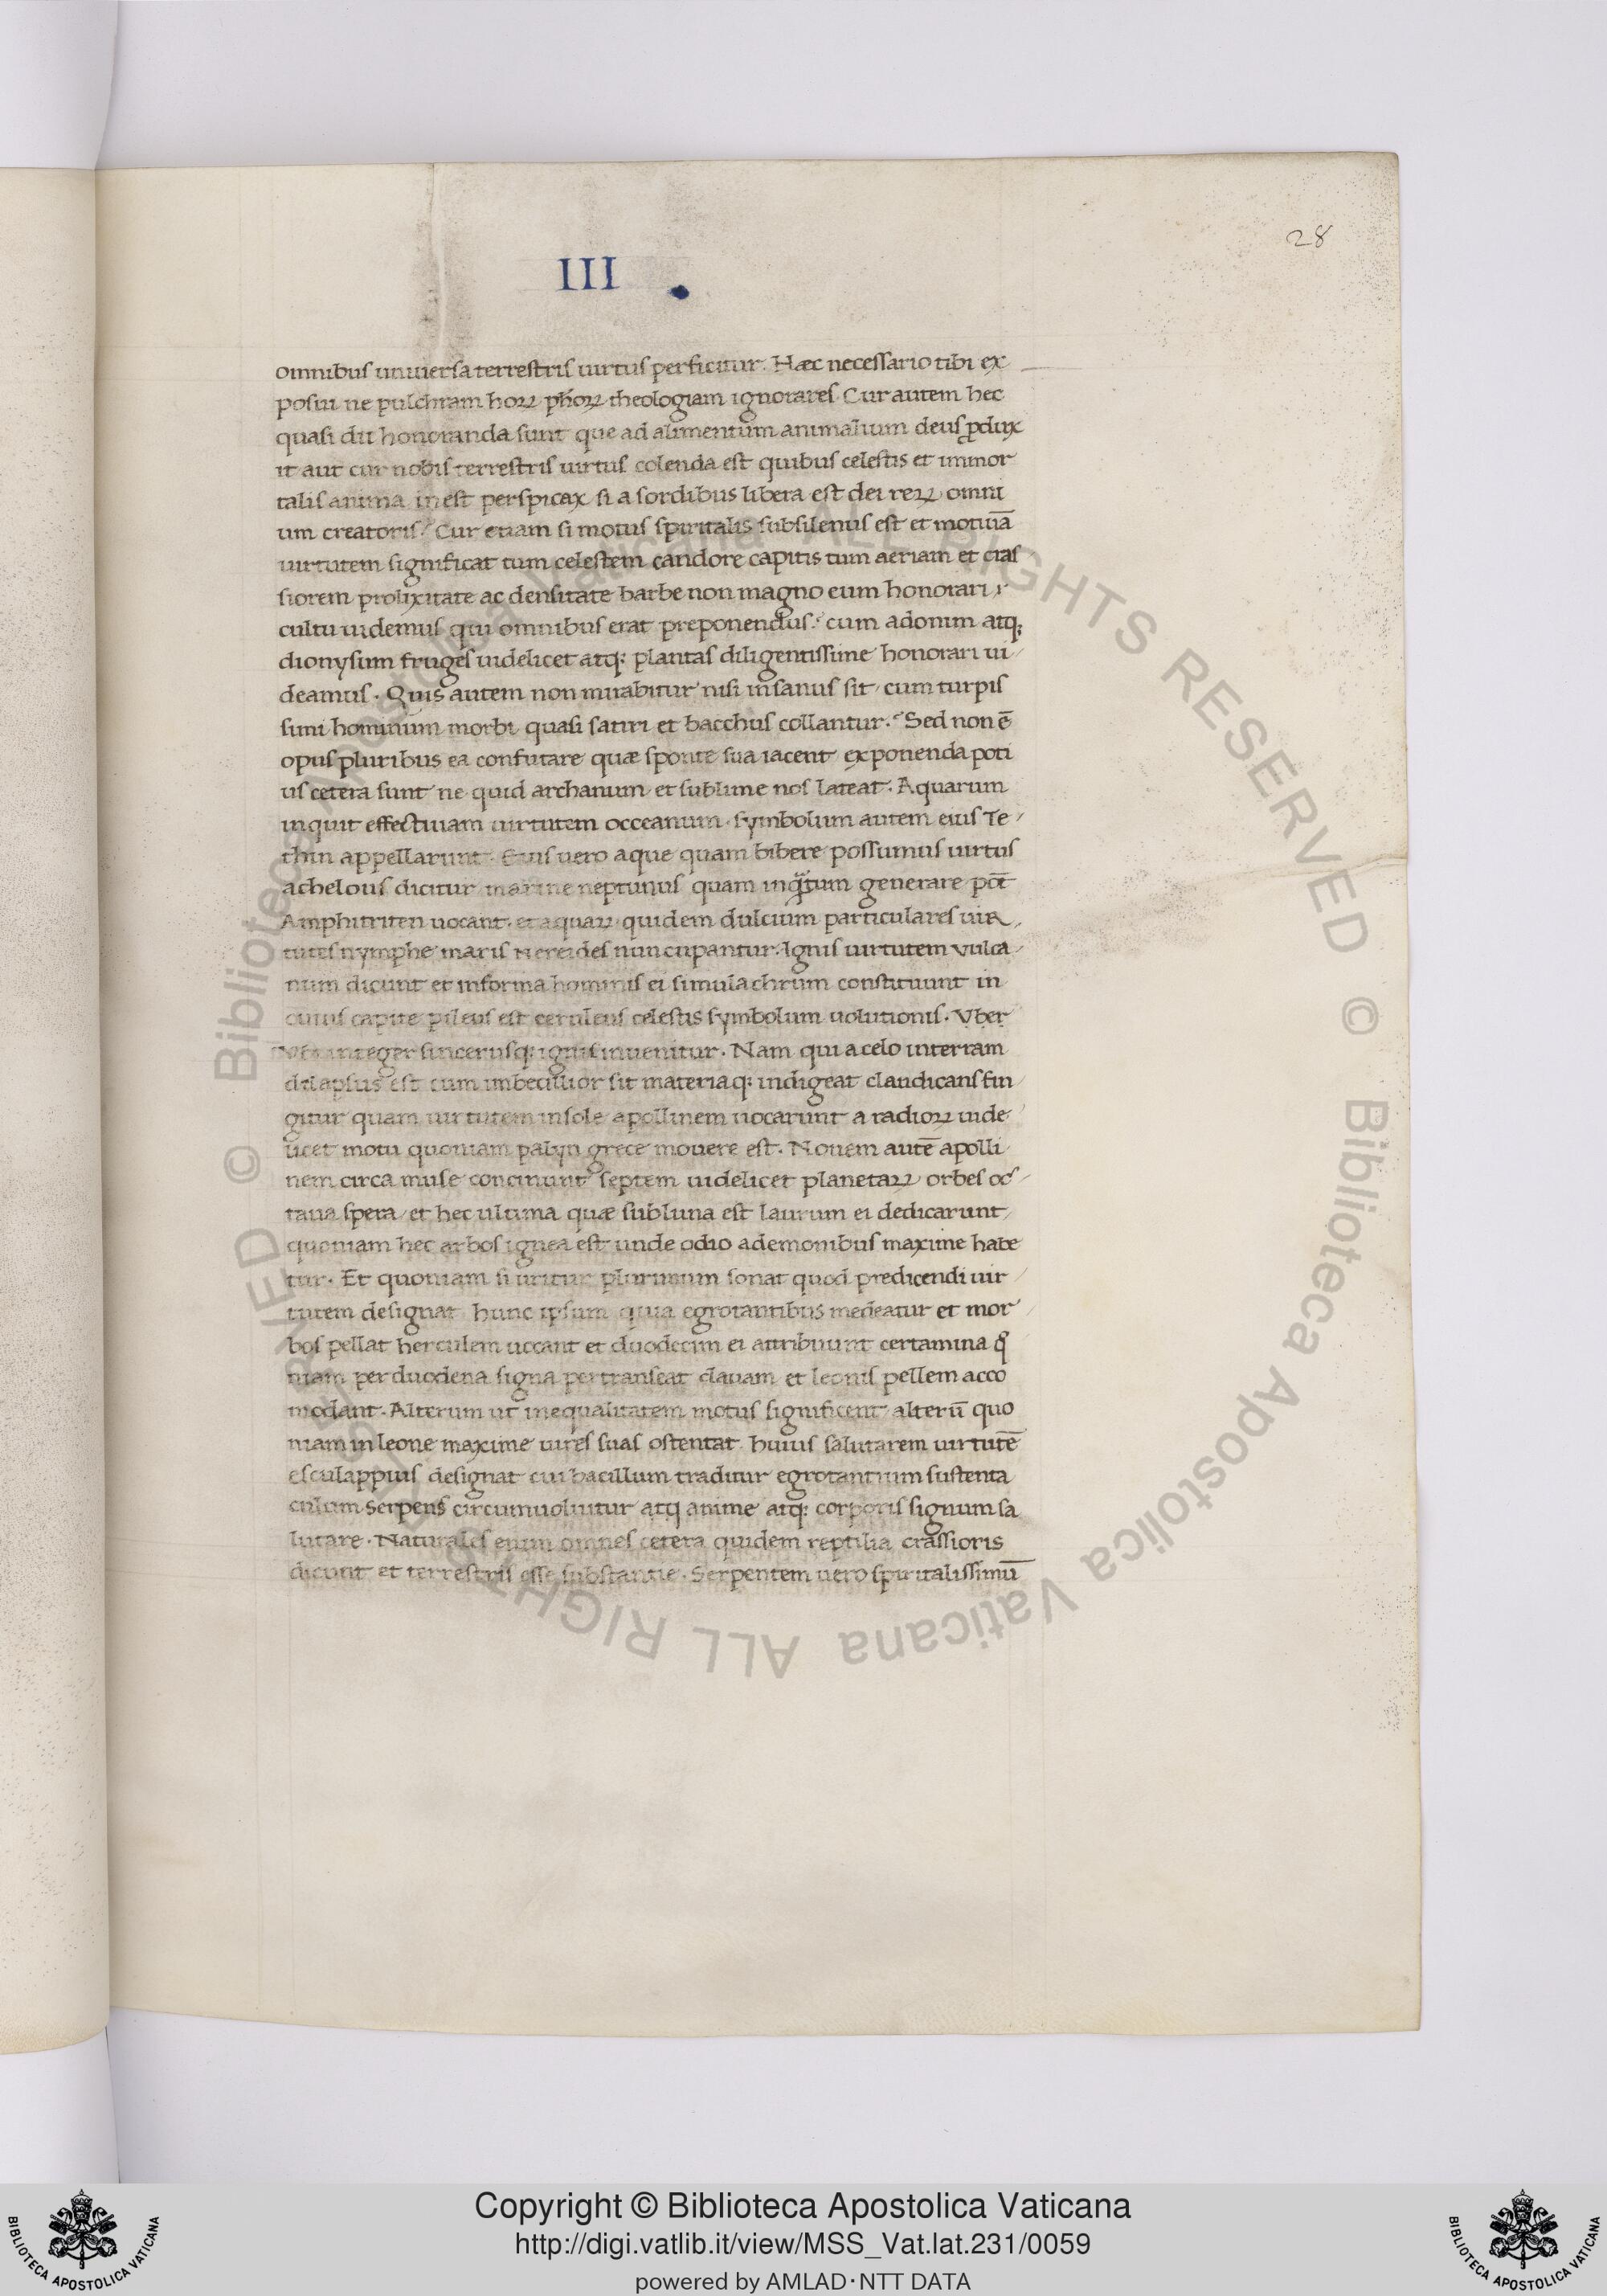 28
III
omnibus uniuersa terrestris uirtus perficitur. Hæc necessario tibi ex
posui ne pulchram hoꝝ ph̄oꝝ theologiam ignorares. Cur autem hec
quasi dii honoranda sunt que ad alimentum animalium deus ꝓdux
it aut cur nobis terrestris uirtus colenda est quibus celestis et immor
talis anima inest perspicax si a sordibus libera est dei reꝝ omni
um creatoris? Cur etiam si motus spiritalis subsilenus est et motiuā
uirtutem significat tum celestem candore capitis tum aeriam et cras
siorem prolixitate ac densitate barbe non magno eum honorari
cultu uidemus qui omnibus erat preponendus? cum adonim atq;
dionysum fruges uidelicet atq; plantas diligentissime honorari ui
deamus. Quis autem non mirabitur nisi insanus sit cum turpis
simi hominum morbi quasi satiri et bacchus collantur. Sed non ē
opus pluribus ea confutare quæ sponte sua iacent exponenda poti
us cetera sunt ne quid archanum et sublime nos lateat. Aquarum
inquit effectiuam uirtutem occeanum symbolum autem eius Te
thin appellarunt. Eius uero aque quam bibere possumus uirtus
achelous dicitur marine neptunus quam inq̄tum generare pōt
Amphitriten uocant. et aquaꝝ quidem dulcium particulares uir
tutes nymphe maris Nereides nuncupantur. Ignis uirtutem Vulca
num dicunt et in forma hominis ei simulachrum constituunt in
cuius capite pileus est ceruleus celestis symbolum uolutionis. Vber
integer sincerusq; ignis inuenitur. Nam qui a celo in terram
dilapsus est cum imbecillior sit materiaq; indigeat claudicans fin
gitur quam uirtutem in sole apollinem uocarunt a radioꝝ uide
licet motu quoniam palyn grece mouere est. Nouem autē apolli
nem circa muse concinunt septem uidelicet planetaꝝ orbes oc
taua spera et hec ultima quæ sub luna est laurum ei dedicarunt
quoniam hec arbos ignea est unde odio a demonibus maxime habe
tur. Et quoniam si uritur plurimum sonat quod predicendi uir
tutem designat hunc ipsum quia egrotantibus medeatur et mor
bos pellat herculem uocant et duodecim ei attribuunt certamina qͦ
niam per duodena signa pertranseat clauam et leonis pellem acco
modant. Alterum ut inequalitatem motus significent alterū quo
niam in leone maxime uires suas ostentat huius salutarem uirtutē
esculappius designat cui bacillum traditur egrotantium sustenta
culum serpens circumuoluitur atq anime atq; corporis signum sa
lutare. Naturales enim omnes cetera quidem reptilia crassioris
dicunt et terrestris esse substantie. Serpentem uero spiritalissimū
© Biblioteca Apostolica Vaticana ALL RIGHTS RESERVED © Biblioteca Apostolica Vaticana ALL RIGHTS RESERVED
Copyright © Biblioteca Apostolica Vaticana
http://digi.vatlib.it/view/MSS_Vat.lat.231/0059
powered by AMLAD·NTT DATA
BIBLIOTECA APOSTOLICA VATICANA
BIBLIOTECA APOSTOLICA VATICANA